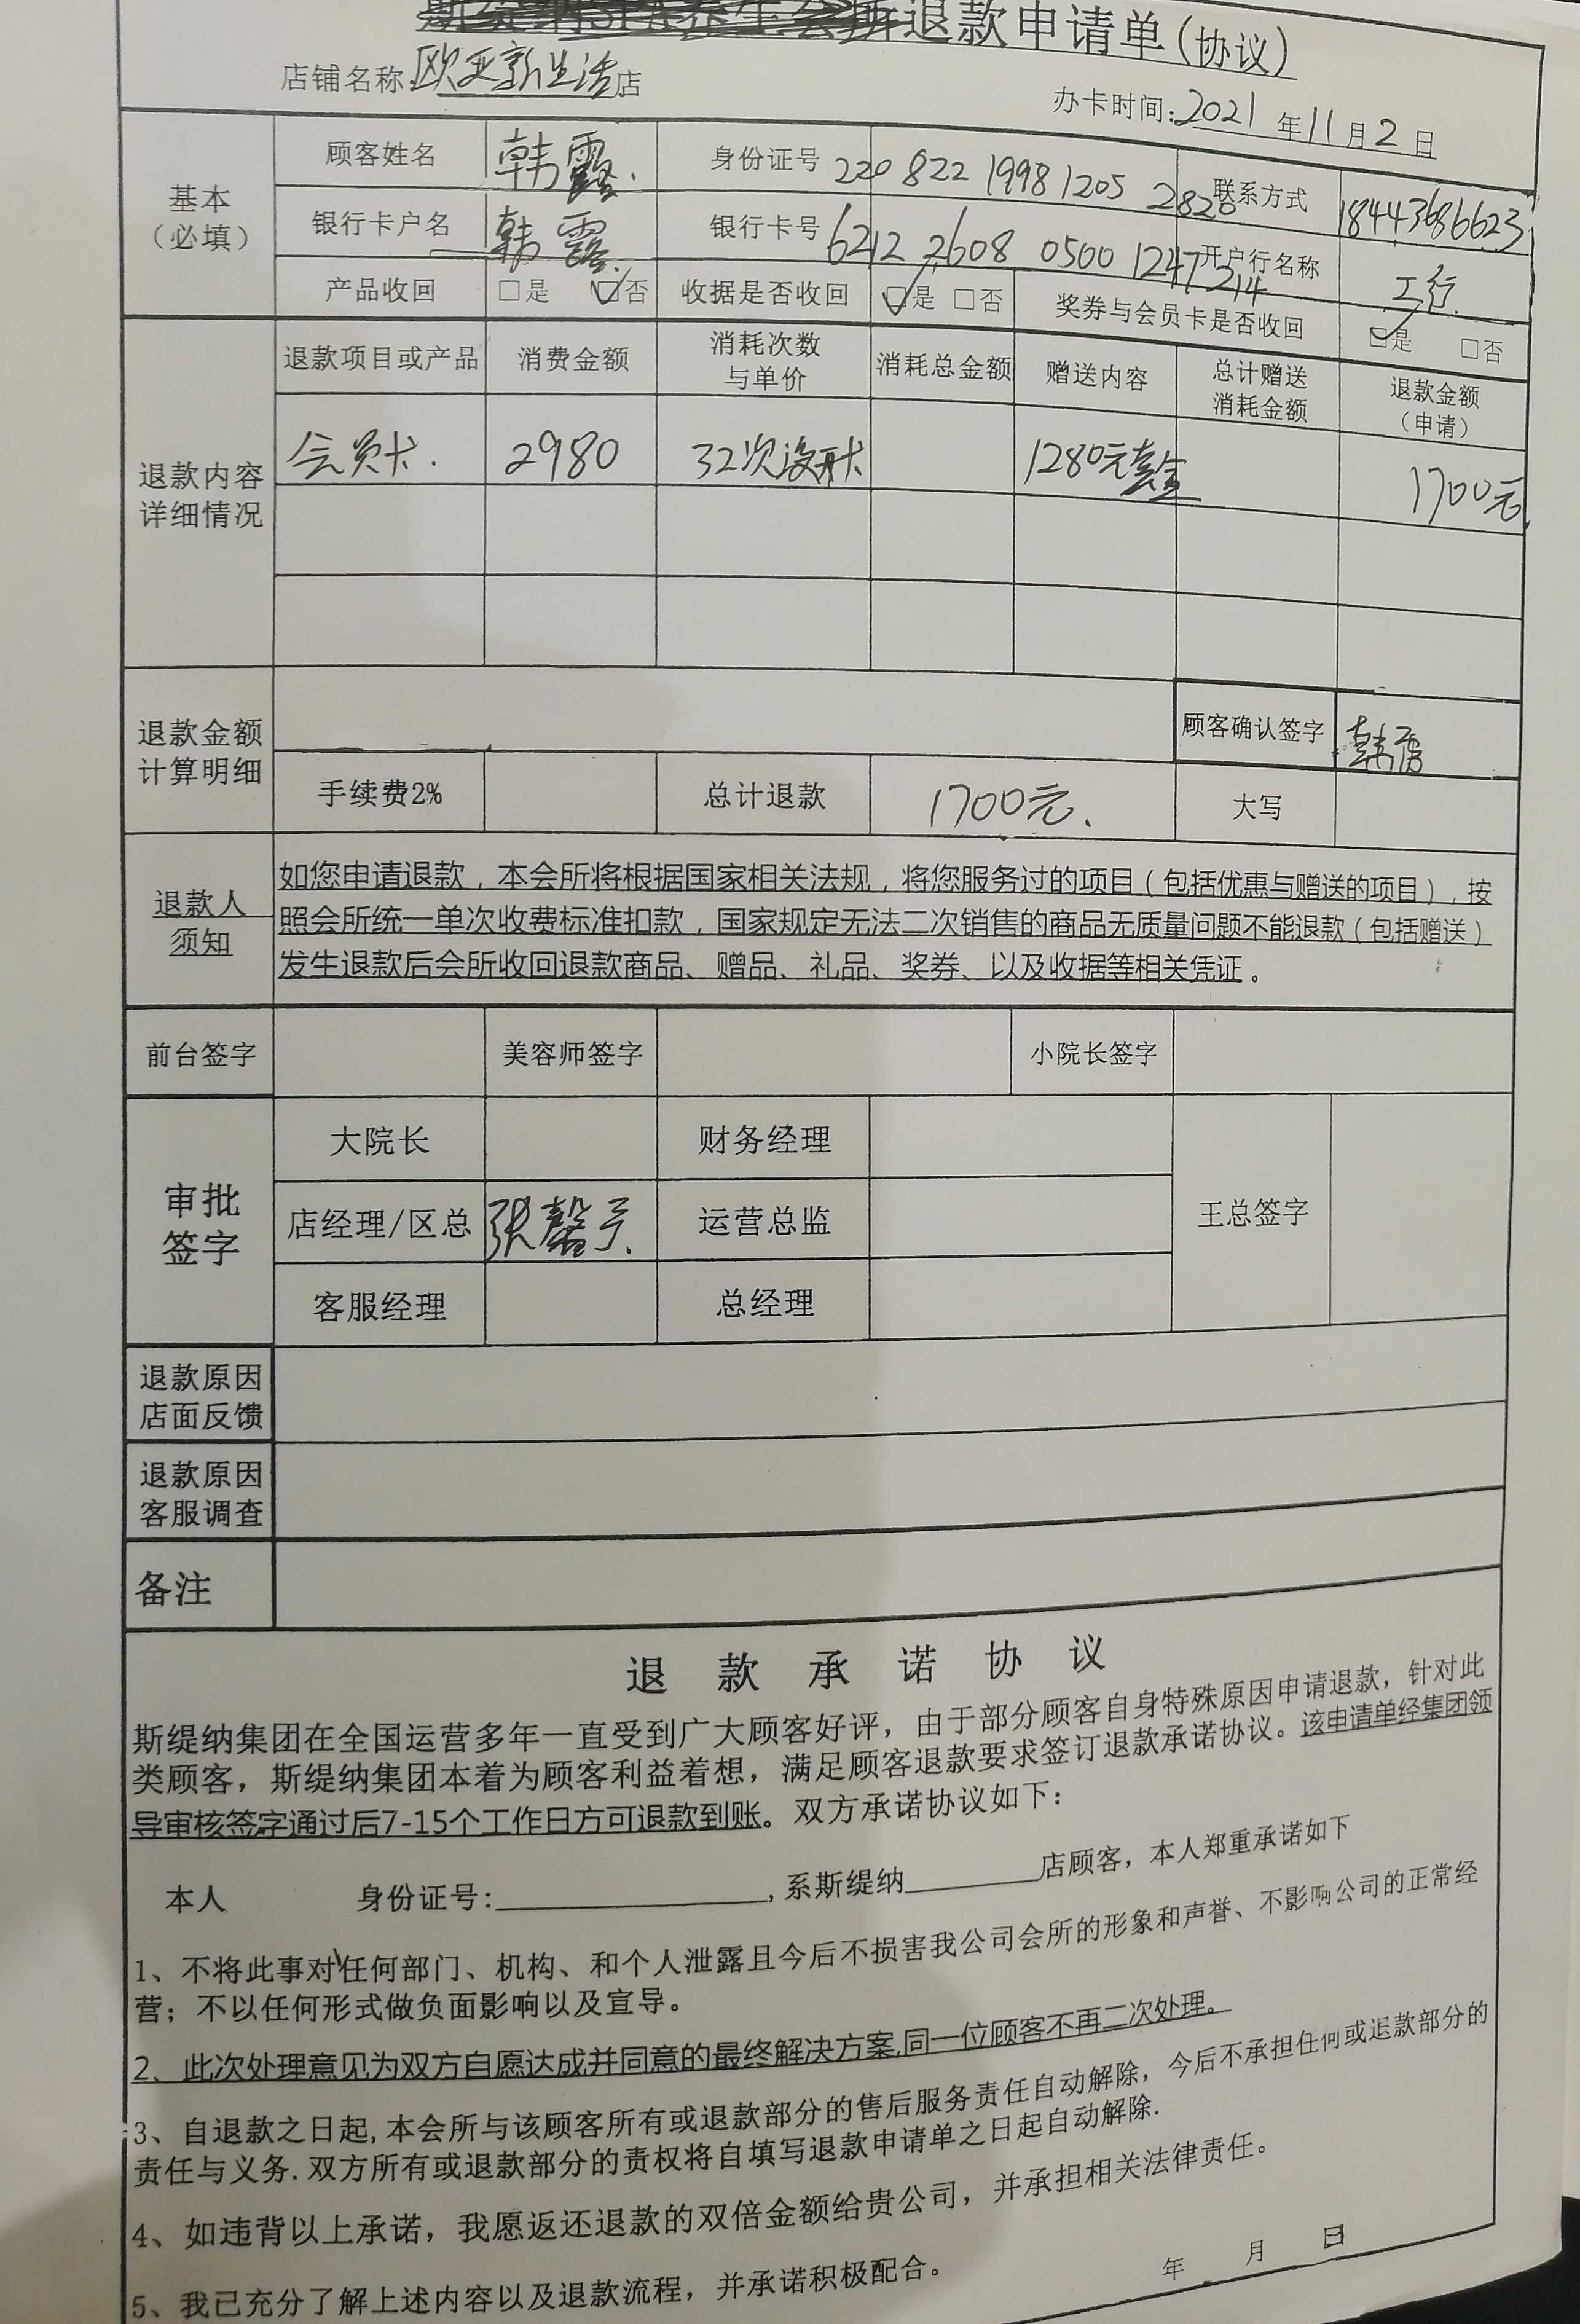 退款申请单(协议)
店铺名称 欧亚新生活店
办卡时间:2021年11月2日
基本
(必填)
顾客姓名 韩露 身份证号 220822199812052820 联系方式 18443686623
银行卡户名 韩露 银行卡号 6212260805001247214 开户行名称 工行
产品收回 □是 ☑否 收据是否收回 ☑是 □否 奖券与会员卡是否收回 ☑是 □否
退款内容
详细情况
退款项目或产品 消费金额 消耗次数与单价 消耗总金额 赠送内容 总计赠送消耗金额 退款金额(申请)
会员卡. 2980 32次没开卡 1280元套盒 1700元
退款金额
计算明细
顾客确认签字 韩露
手续费2% 总计退款 1700元、 大写
退款人
须知
如您申请退款，本会所将根据国家相关法规，将您服务过的项目（包括优惠与赠送的项目），按
照会所统一单次收费标准扣款，国家规定无法二次销售的商品无质量问题不能退款（包括赠送）
发生退款后会所收回退款商品、赠品、礼品、奖券、以及收据等相关凭证。
前台签字 美容师签字 小院长签字
审批
签字
大院长 财务经理
店经理/区总 张馨予 运营总监 王总签字
客服经理 总经理
退款原因
店面反馈
退款原因
客服调查
备注
退款承诺协议
斯缇纳集团在全国运营多年一直受到广大顾客好评，由于部分顾客自身特殊原因申请退款，针对此
类顾客，斯缇纳集团本着为顾客利益着想，满足顾客退款要求签订退款承诺协议。该申请单经集团领
导审核签字通过后7-15个工作日方可退款到账。双方承诺协议如下：
本人 身份证号:___________,系斯缇纳______店顾客，本人郑重承诺如下
1、不将此事对任何部门、机构、和个人泄露且今后不损害我公司会所的形象和声誉、不影响公司的正常经
营；不以任何形式做负面影响以及宣导。
2、此次处理意见为双方自愿达成并同意的最终解决方案,同一位顾客不再二次处理。
3、自退款之日起,本会所与该顾客所有或退款部分的售后服务责任自动解除，今后不承担任何或退款部分的
责任与义务.双方所有或退款部分的责权将自填写退款申请单之日起自动解除.
4、如违背以上承诺，我愿返还退款的双倍金额给贵公司，并承担相关法律责任。
5、我已充分了解上述内容以及退款流程，并承诺积极配合。
年 月 日